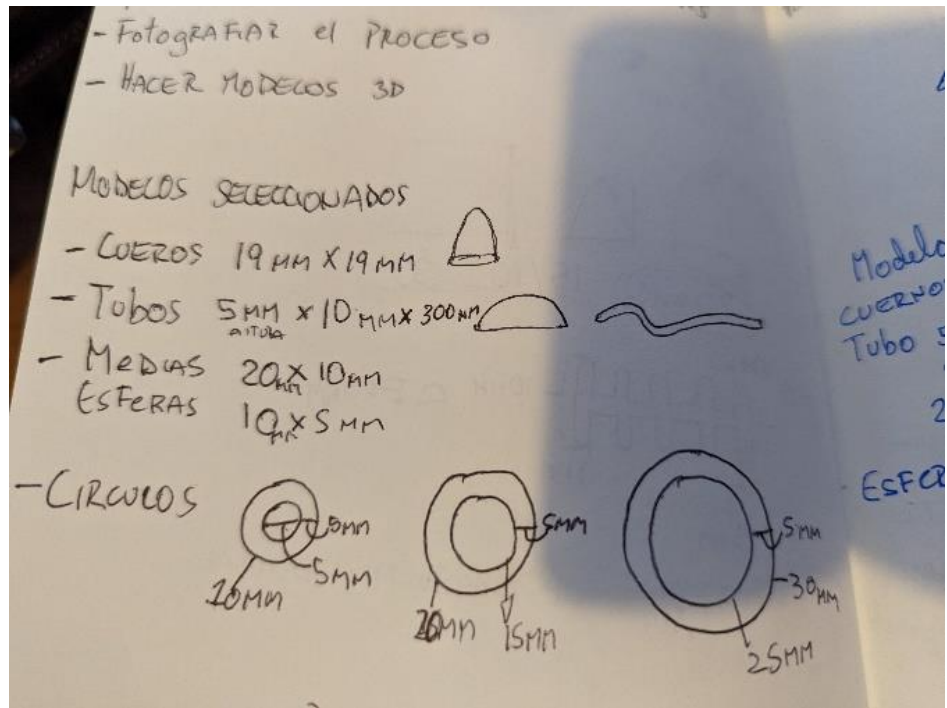 - FOTOGRAFIAR el PROCESO
- HACER MODELOS 3D
MODELOS SELECCIONADOS
- CUEROS 19 MM X 19 MM
- TUBOS 5 MM X 10 MM X 300 MM
ALTURA
- MEDIAS 20 MM X 10 MM
ESFERAS 10 MM X 5 MM
- CIRCULOS
5MM
5MM
10MM
5MM
20MM
15MM
5MM
30MM
25MM
Modelo
CUERNO
Tubo 5
2
ESFER